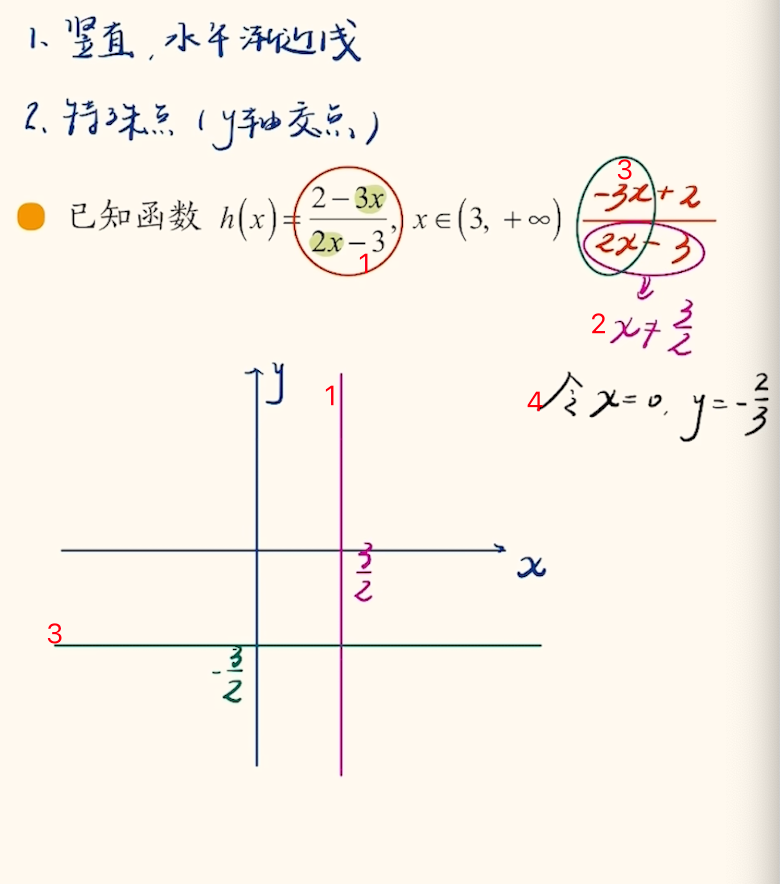 1、竖直,水平渐近线
2、特殊点(y轴交点)
已知函数 h(x)=(2-3x)/(2x-3), x∈(3, +∞) (-3x+2)/(2x-3)
1
3
2 x≠3/2
4 令 x=0, y=-2/3
y
1
3/2
x
3
-3/2